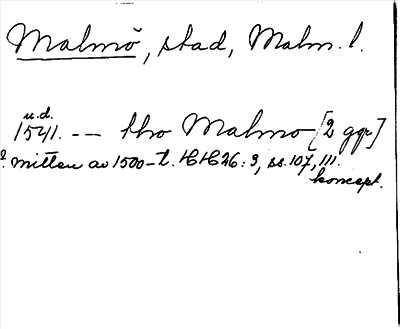 Malmö, stad, Malm. l.
u.d.
1541. -- tho Malmo [2 ggr]
? mitten av 1500-t. HH 26:3, ss. 107, 111.
koncept.